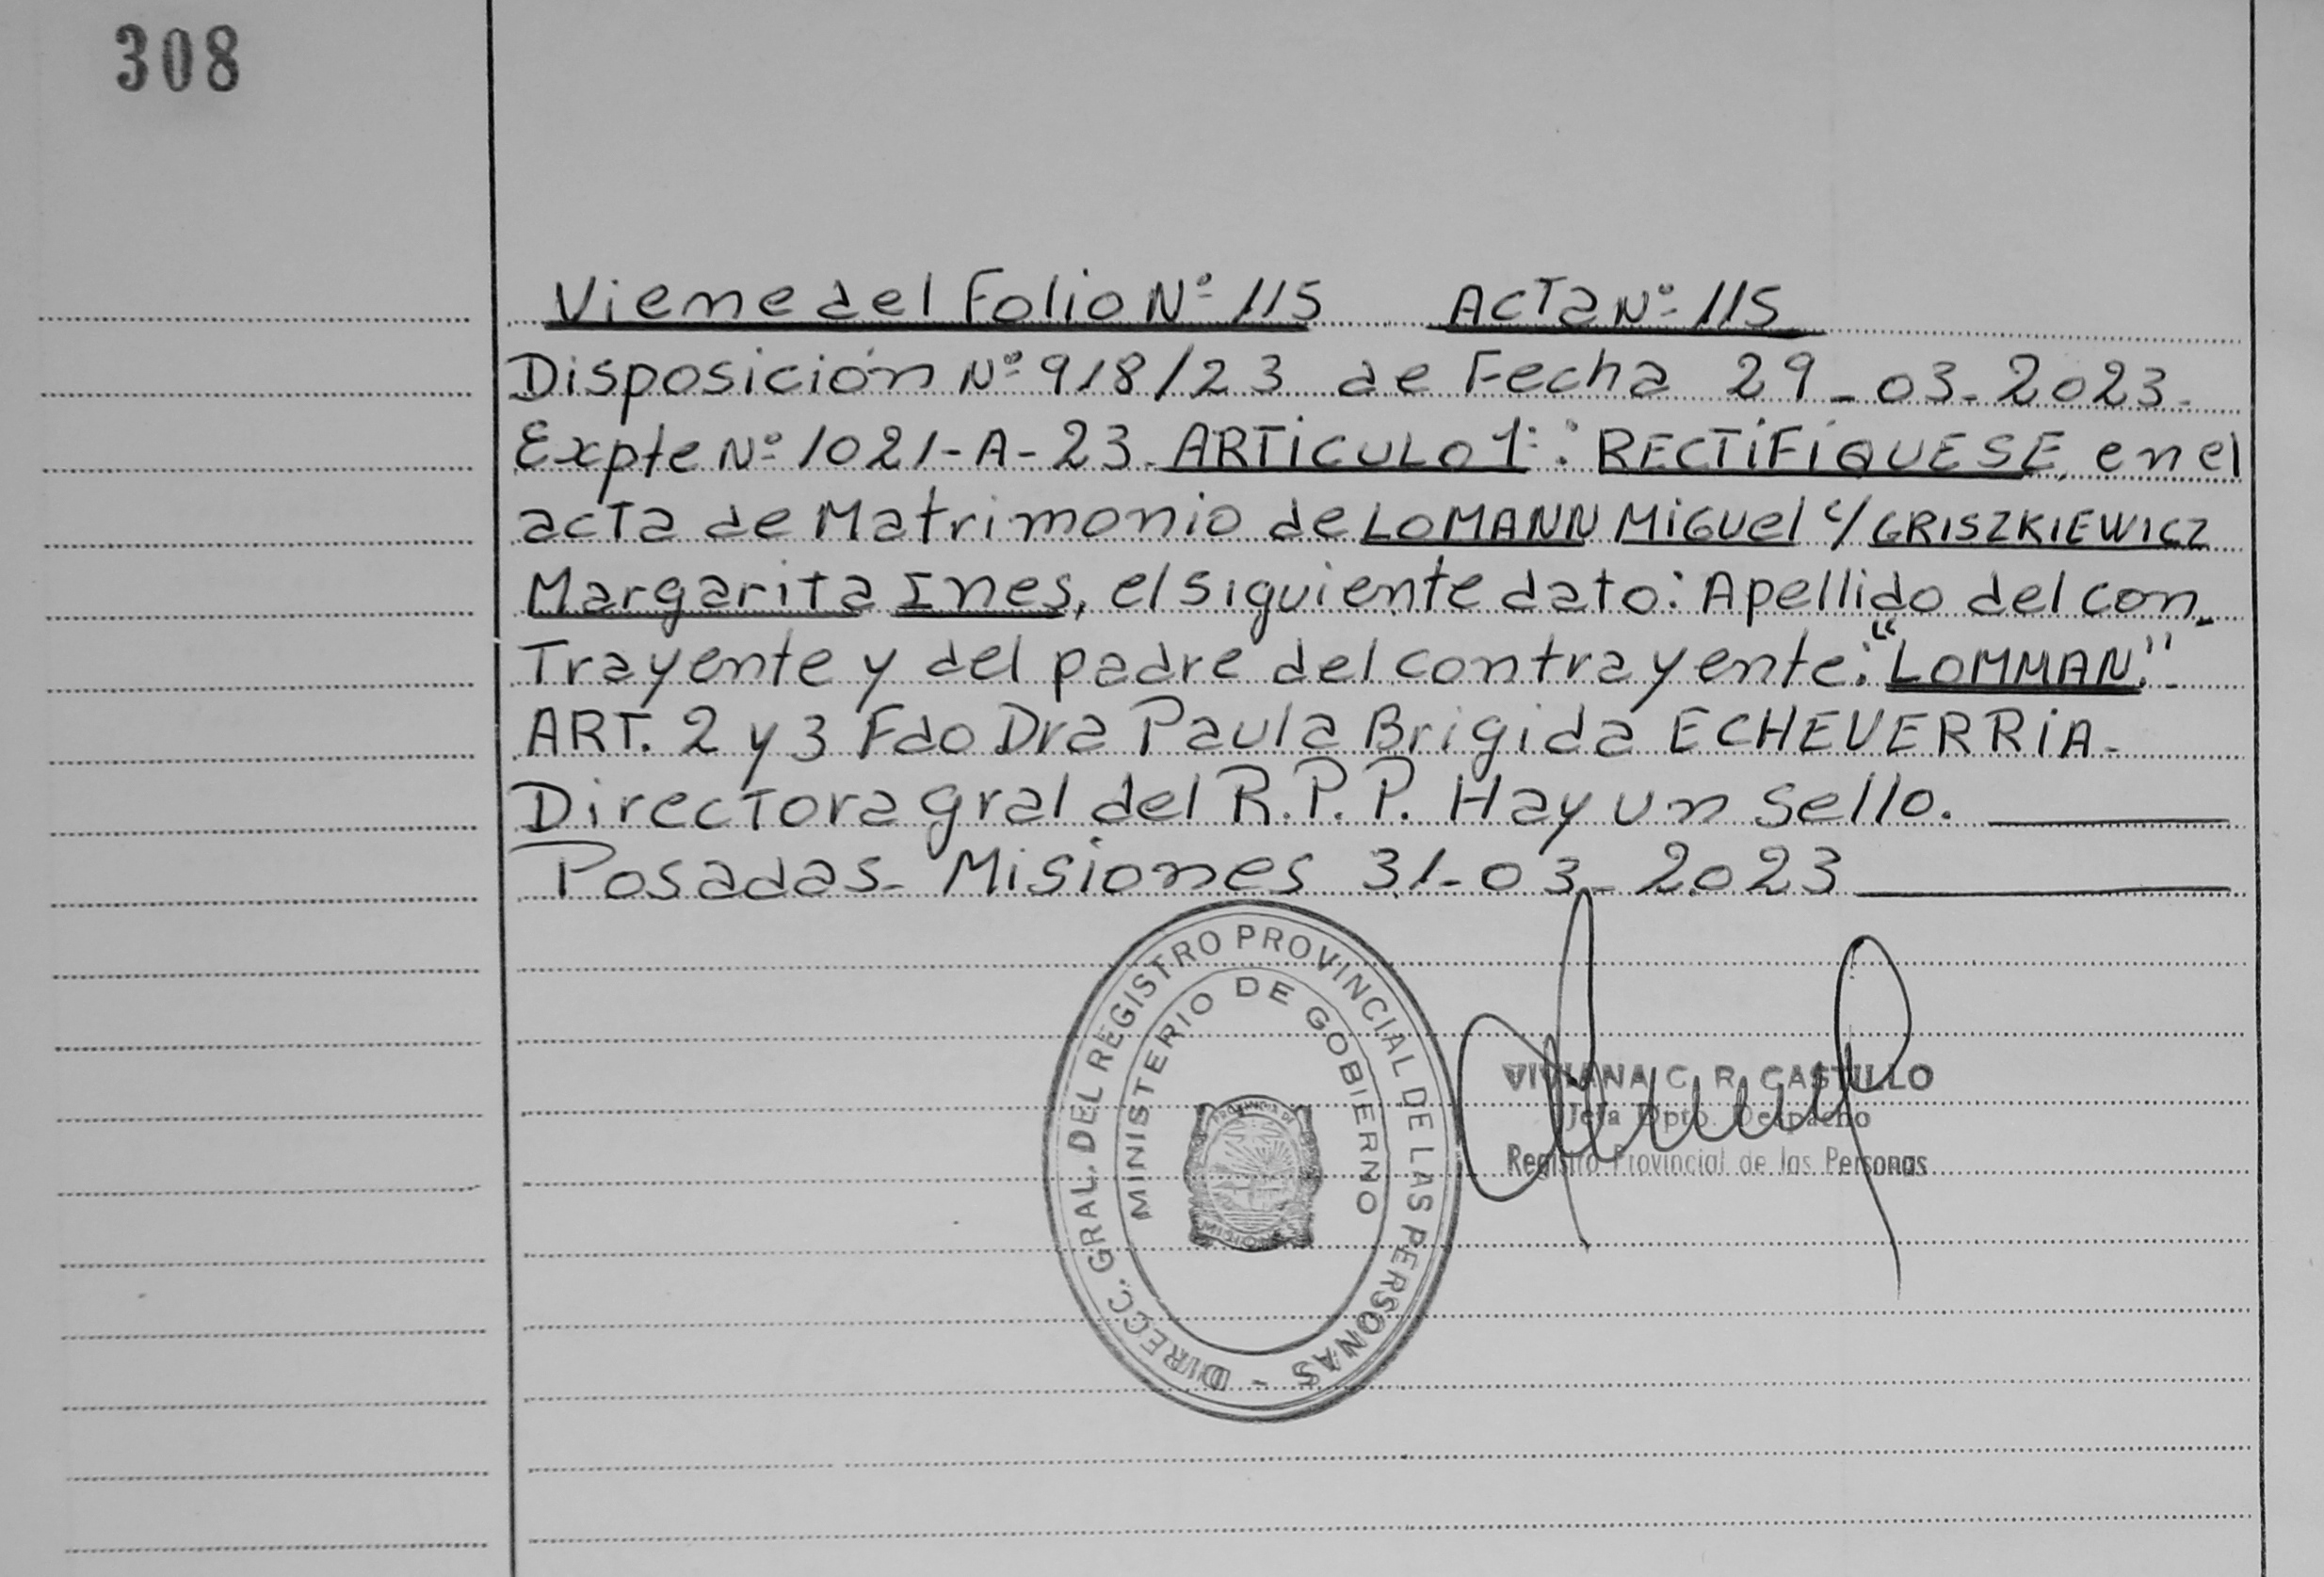 308
Viene del Folio Nº 115 Acta Nº 115
Disposición Nº 918/23 de Fecha 29-03-2023-
Expte Nº 1021-A-23. ARTICULO 1º: RECTIFIQUESE, en el
acta de Matrimonio de LOMANN MIGUel c/ GRISZKIEWICZ
Margarita Ines, el siguiente dato: Apellido del con-
Trayente y del padre del contrayente: "LOMMAN".-
ART. 2 y 3 Fdo Dra Paula Brigida ECHEVERRIA-
Directora gral del R.P.P. Hay un sello.
Posadas- Misiones 31-03-2023
DIRECC. GRAL. DEL REGISTRO PROVINCIAL DE LAS PERSONAS -
MINISTERIO DE GOBIERNO
PROVINCIA DE
MISIONES
VIVIANA C. R. CASTILLO
Jefa Dpto. Despacho
Registro Provincial de las Personas